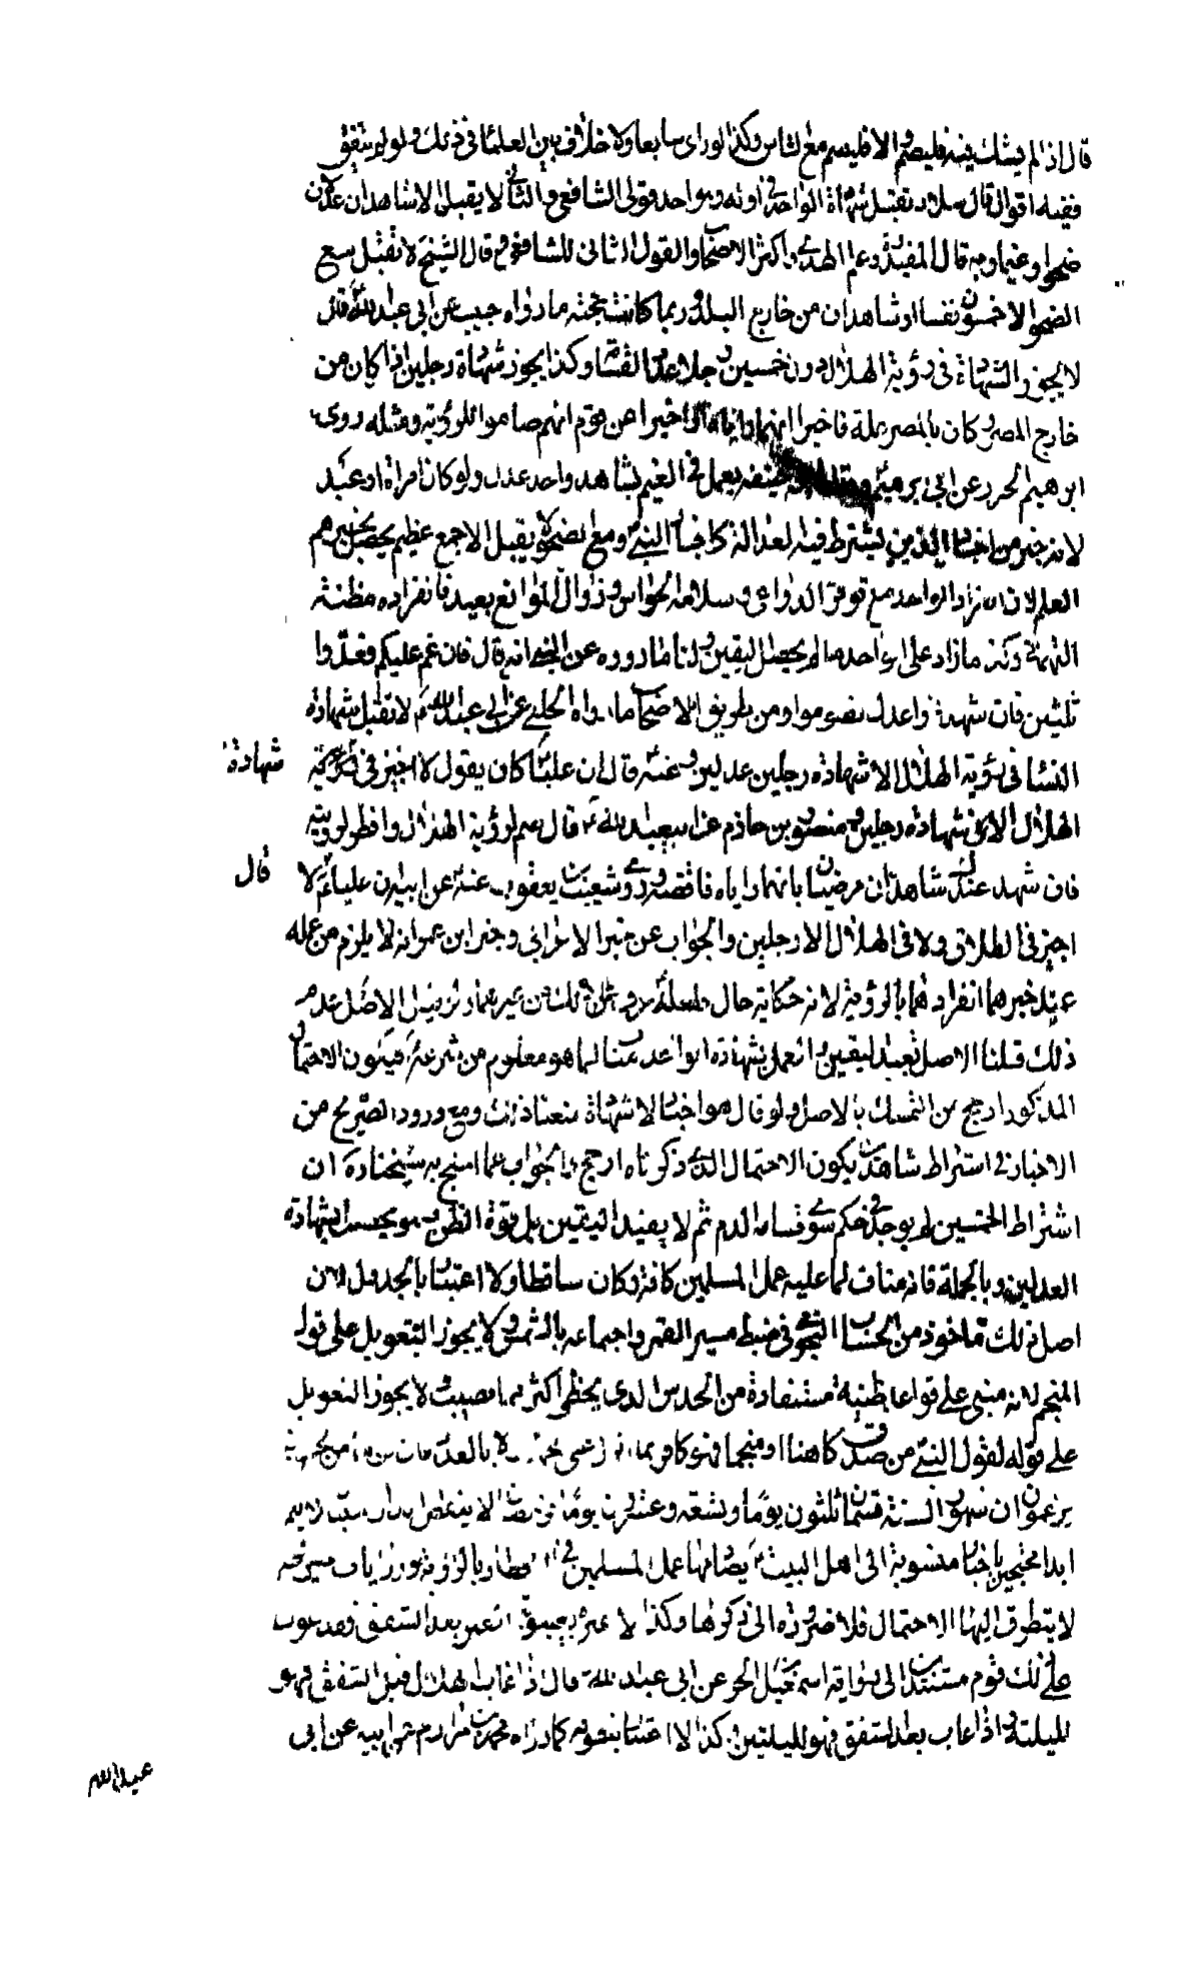 قال اذا لم يشك فيه فليصم والا فليصم مع الناس وكذا لو راى سابعا ولا خلاف بين العلماء في ذلك ولو لم يتفق
ففيه اقوال قال سلار تقبل شهادة الواحد في اوله وهو احد قولى الشافعي والثاني لا يقبل الا شاهدان عدلان
ضحوا وغيما وبه قال المفيد وعلم الهدى واكثر الاصحاب والقول الثانى للشافعي وقال الشيخ لا تقبل مع
الصحو الا خمسون نفسا او شاهدان من خارج البلد وربما كانت حجته ما رواه حبيب عن ابى عبد الله قال
لا يجوز الشهادة فى رؤية الهلال دون خمسين رجلا عدد القسامة وكذا يجوز شهادة رجلين اذا كان من
خارج المصر وكان بالمصر علة فاخبرا انهما راياه او اخبرا عن قوم انهم صاموا للرؤية ومثله روى
ابرهيم الحرر عن ابي حنيفه يعمل في الغيم بشاهد واحد عدل ولو كان امراة او عبد
لانه خبر من اخبار الدين يشترط فيه العدالة كاخبار النبي ومع الصحو لا يقبل الا جمع عظيم يحصل بخبرهم
العلم لان انفراد الواحد مع توفر الدواعى وسلامة الحواس وزوال الموانع بعيد فانفراده مظنة
التهمة وكذ ما زاد على الواحد ما لم يحصل اليقين ولنا ما رووه عن النبي انه قال فان غم عليكم فعدوا
ثلثين فان شهد ذوا عدل فصوموا ومن طريق الاصحاب ما رواه الحلبى عن ابى عبد الله لا تقبل شهادة
النساء في رؤية الهلال الا شهادة رجلين عدلين وعنه قال ان عليا كان يقول لا اجيز في رؤية
شهادة
الهلال الا شهادة رجلين ومنصور بن حازم عن ابيعبد الله قال صم لرؤية الهلال وافطر لرؤيته
فان شهد عندك شاهدان مرضيان بانهما راياه فاقضه وروى شعيب بن يعقوب عن ان عليا لا
قال
اجيز في الطلاق ولا في الهلال الا رجلين والجواب عن خبر الاعرابي وخبر ابن عمر انه لا يلزم من عمله
عند خبرهما انفرادهما بالرؤية لانه حكاية حال الاصل عدم
ذلك قلنا الاصل تعبد اليقين والعمل بشهادة الواحد لما هو معلوم من شرعه فيكون الاحتمال
المذكور ارجح من التمسك بالاصل ولو قال هو اخبار لا شهادة منعنا ذلك ومع ورود الصريح من
الاخبار في اشتراط شاهدين يكون الاحتمال الذي ذكرناه ارجح والجواب عما احتج به شيخنا ره ان
اشتراط الخمسين لم يوجد في حكم سوى قسامة الدم ثم لا يفيد اليقين بل قوة الظن وهو يحصل بشهادة
العدلين وبالجملة فانه مناف لما عليه عمل المسلمين كافة فكان ساقطا ولا اعتبار بالجدول لان
اصل ذلك ماخوذ من الحساب النجومي في ضبط مسير القمر واجتماعه بالشمس ولا يجوز التعويل على قول
المنجم لانه مبني على قواعد ظنية مستفادة من الحدس الذى يخطى اكثر مما يصيب ولا يجوز التعويل
على قوله لقول النبي من صدق كاهنا او منجما فهو كافر بما ولا بالعدد فان
يزعمون ان شهور السنة قسمان ثلثون يوما وتسعة وعشرون يوما لا ينقص ابدا لا يتم
ابدا محتجين باخبار منسوبة الى اهل البيت يصادمها عمل المسلمين في بالرؤية وروايات صريحة
لا يتطرق اليها الاحتمال فلا ضرورة الى ذكرها وكذا لا عبرة بغيبوبة القمر بعد الشفق وقد عول
على ذلك قوم مستندا الى رواية اسمعيل الحر عن ابى عبد الله قال اذا غاب الهلال قبل الشفق فهو
لليلته واذا غاب بعد الشفق فهو لليلتين وكذا لا اعتبار بتطوقه كما رواه محمد بن مرازم عن ابيه عن ابى
عبد الله